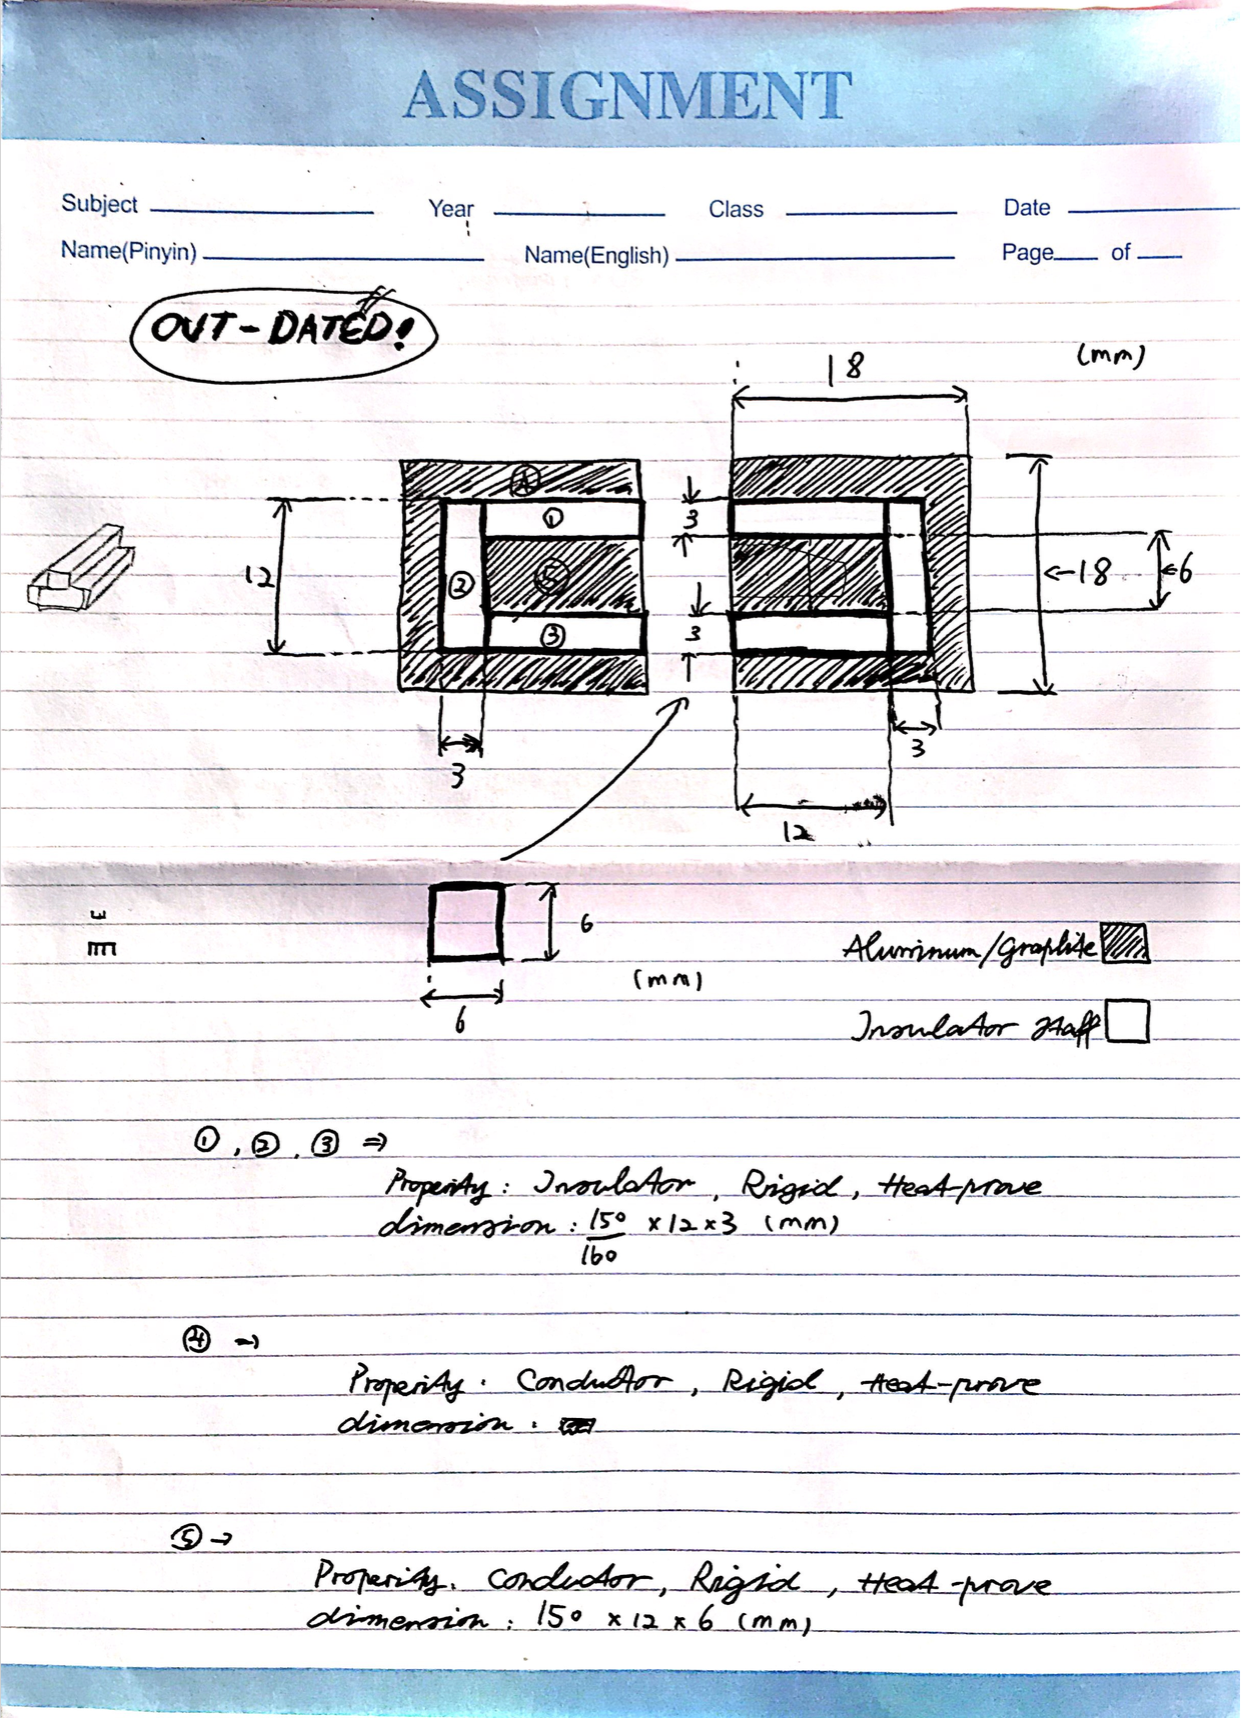 ASSIGNMENT
Subject Year Class Date
Name(Pinyin) Name(English) Page of
OUT-DATED!
(mm)
18
④
①
3
12
②
⑤
18
6
③
3
3
3
12
6
(mm)
6
Aluminum/Graphite
Insulator staff
①, ②, ③ ⇒
Properity: Insulator, Rigid, Heat-prove
dimension: 150 × 12 × 3 (mm)
160
④ →
Properity. Conductor, Rigid, Heat-prove
dimension:
⑤ →
Properity. Conductor, Rigid, Heat-prove
dimension: 150 × 12 × 6 (mm)